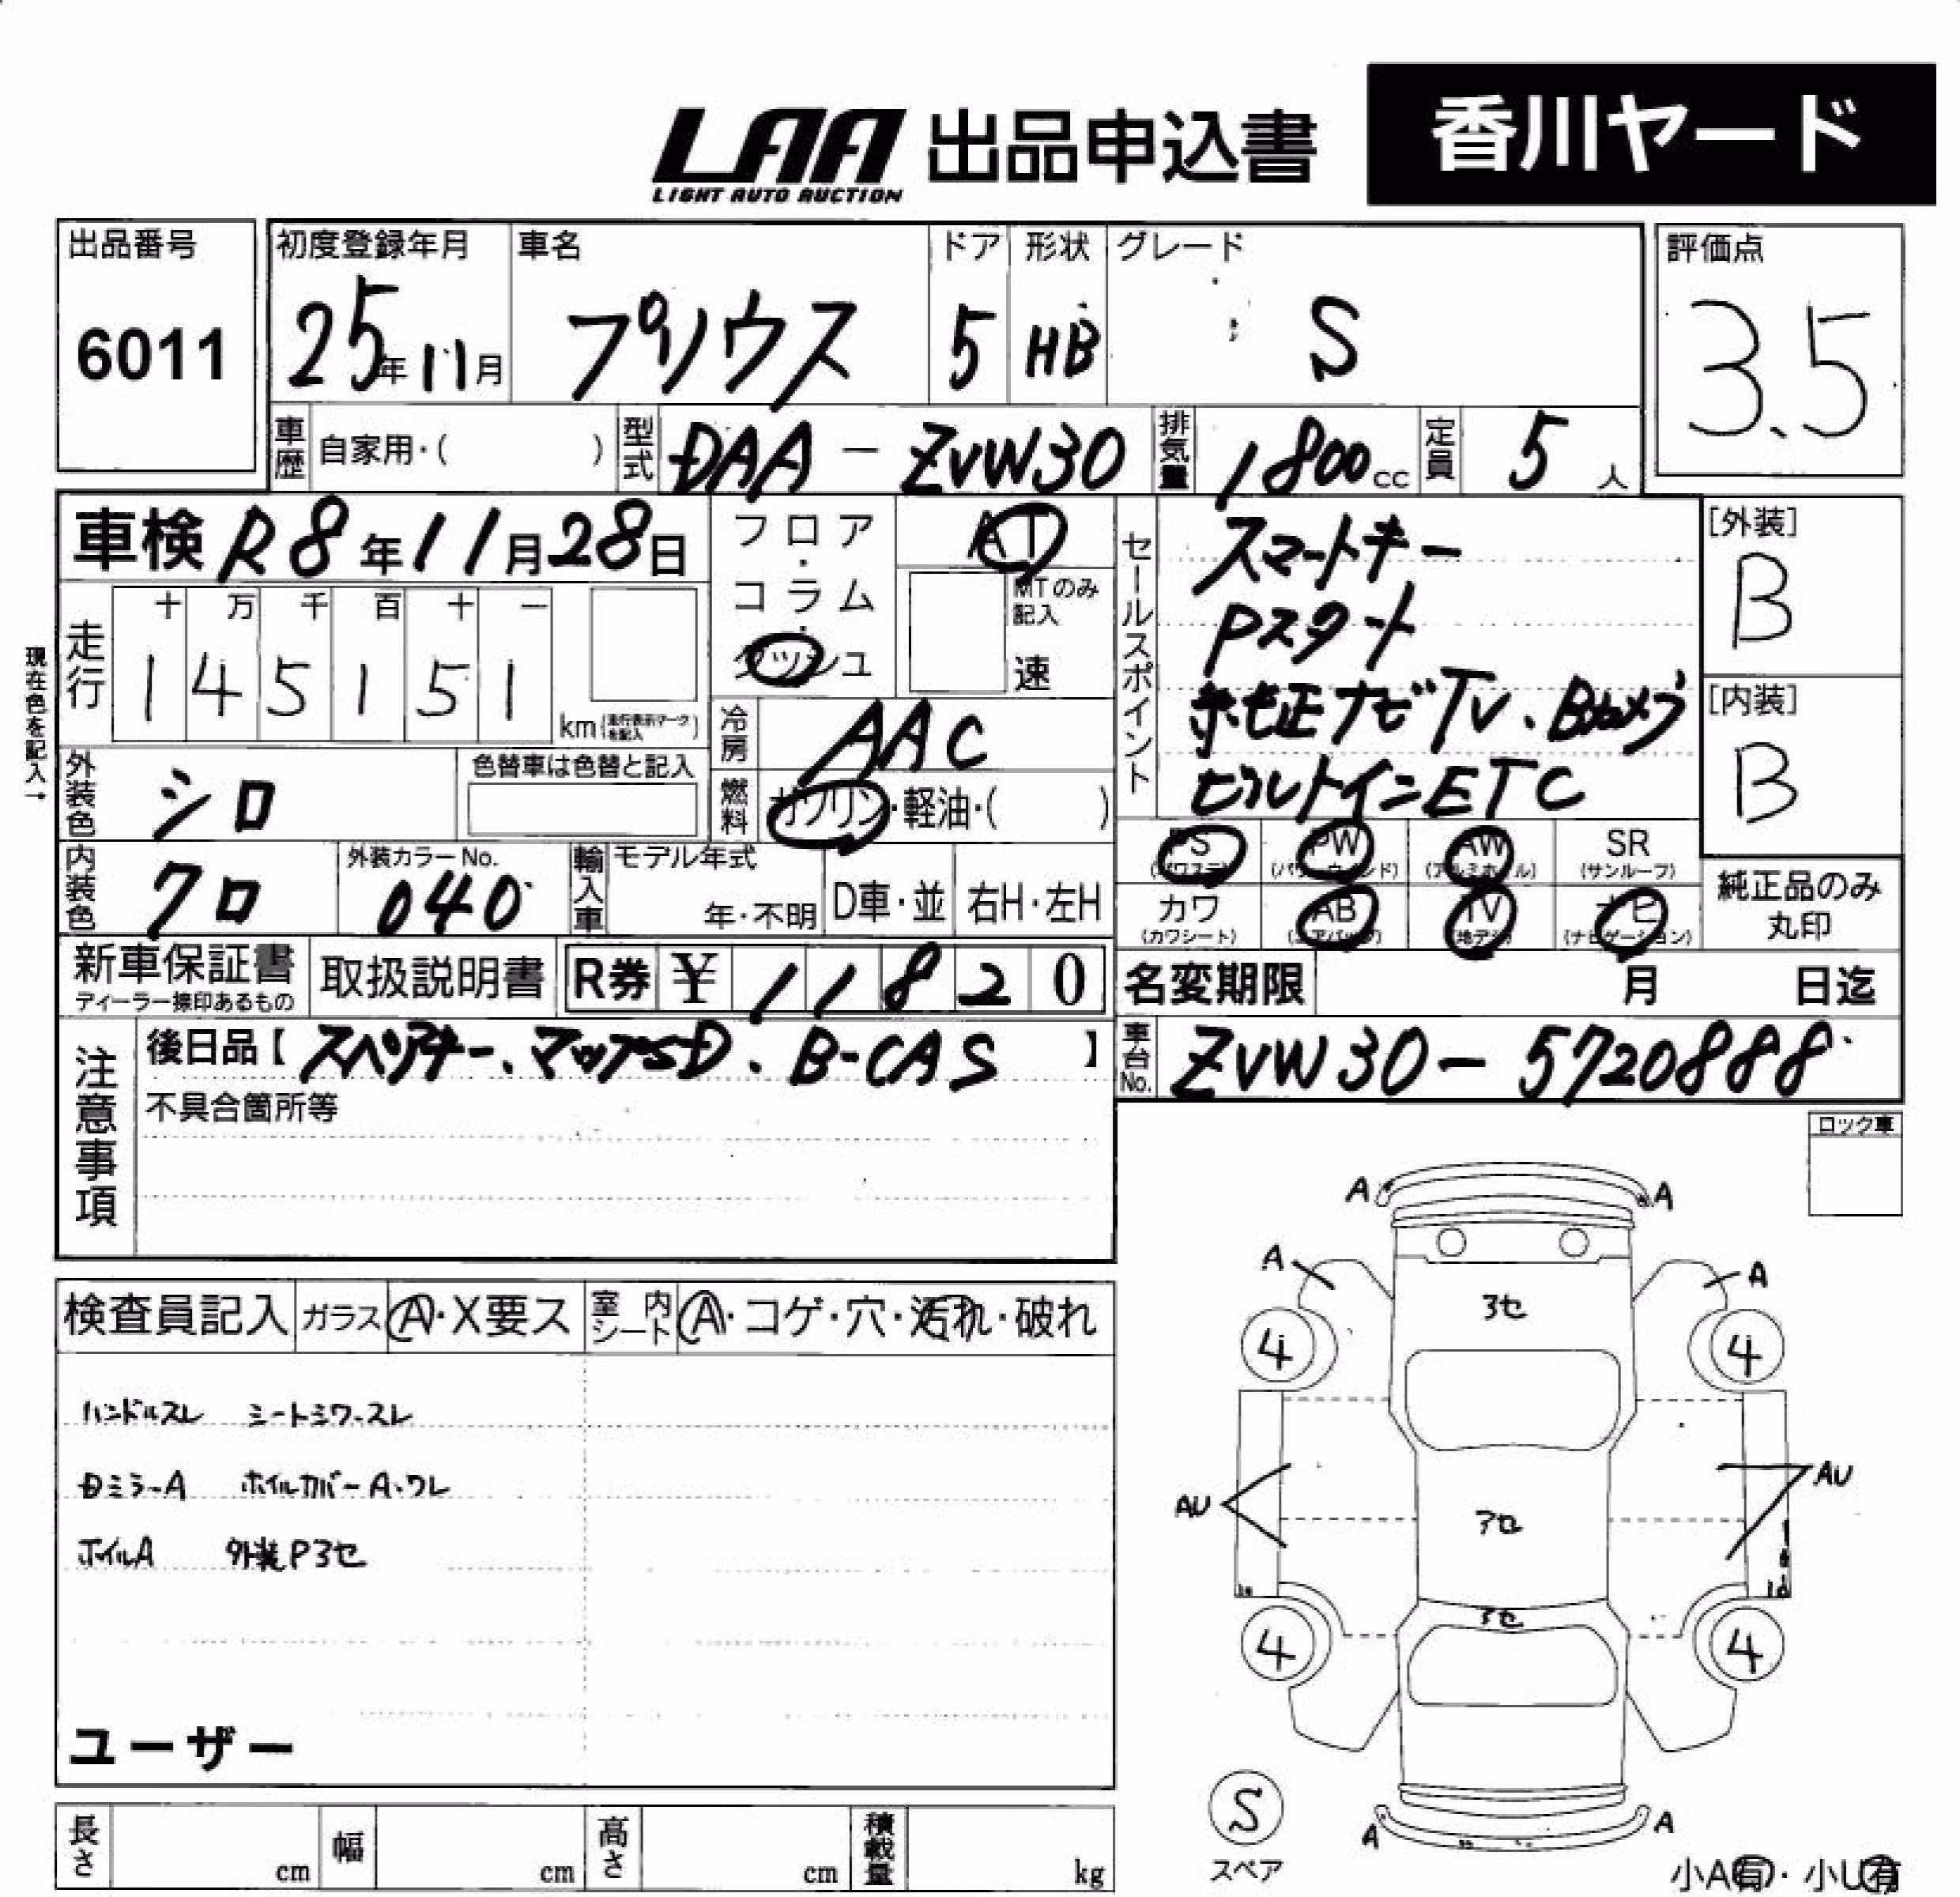 LAA 出品申込書 香川ヤード
LIGHT AUTO AUCTION
出品番号 初度登録年月 車名 ドア 形状 グレード 評価点
6011 25年11月 プリウス 5 HB S 3.5
車歴 自家用・( ) 型式 DAA-ZVW30 排気量 1800cc 定員 5人
車検 R8年11月28日 フロア・コラム・ダッシュ AT
MTのみ記入 速
セールスポイント
スマートキー
Pスタート
純正ナビTV、Bカメラ
ビルトインETC
[外装]
B
[内装]
B
現在色を記入→
走行 十 万 千 百 十 一
1 4 5 1 5 1 km(走行表示マークを記入)
冷房 AAC
外装色 シロ 色替車は色替と記入
燃料 ガソリン・軽油・( )
内装色 クロ 外装カラーNo. 040 輸入車 モデル年式 年・不明 D車・並 右H・左H
PS (パワステ) PW (パワーウィンド) AW (アルミホイル) SR (サンルーフ)
カワ (カワシート) AB (エアバッグ) TV (地デジ) ナビ (ナビゲーション)
純正品のみ丸印
新車保証書 ディーラー捺印あるもの 取扱説明書 R券 ¥ 1 1 8 2 0
名変期限 月 日迄
車台No. ZVW30-5720888
注意事項
後日品【スペアキー、マップSD、B-CAS】
不具合箇所等
ロック車
検査員記入 ガラス A・X要ス 室内シート A・コゲ・穴・汚れ・破れ
ハンドルスレ シートシワ、スレ
Dミラーa ホイルカバーA、ワレ
ホイルA 外装P3セ
ユーザー
A A
A A
3セ
4 4
AU AU
3セ
3セ
4 4
S
スペア
A A
小A有・小U有
長さ cm 幅 cm 高さ cm 積載量 kg